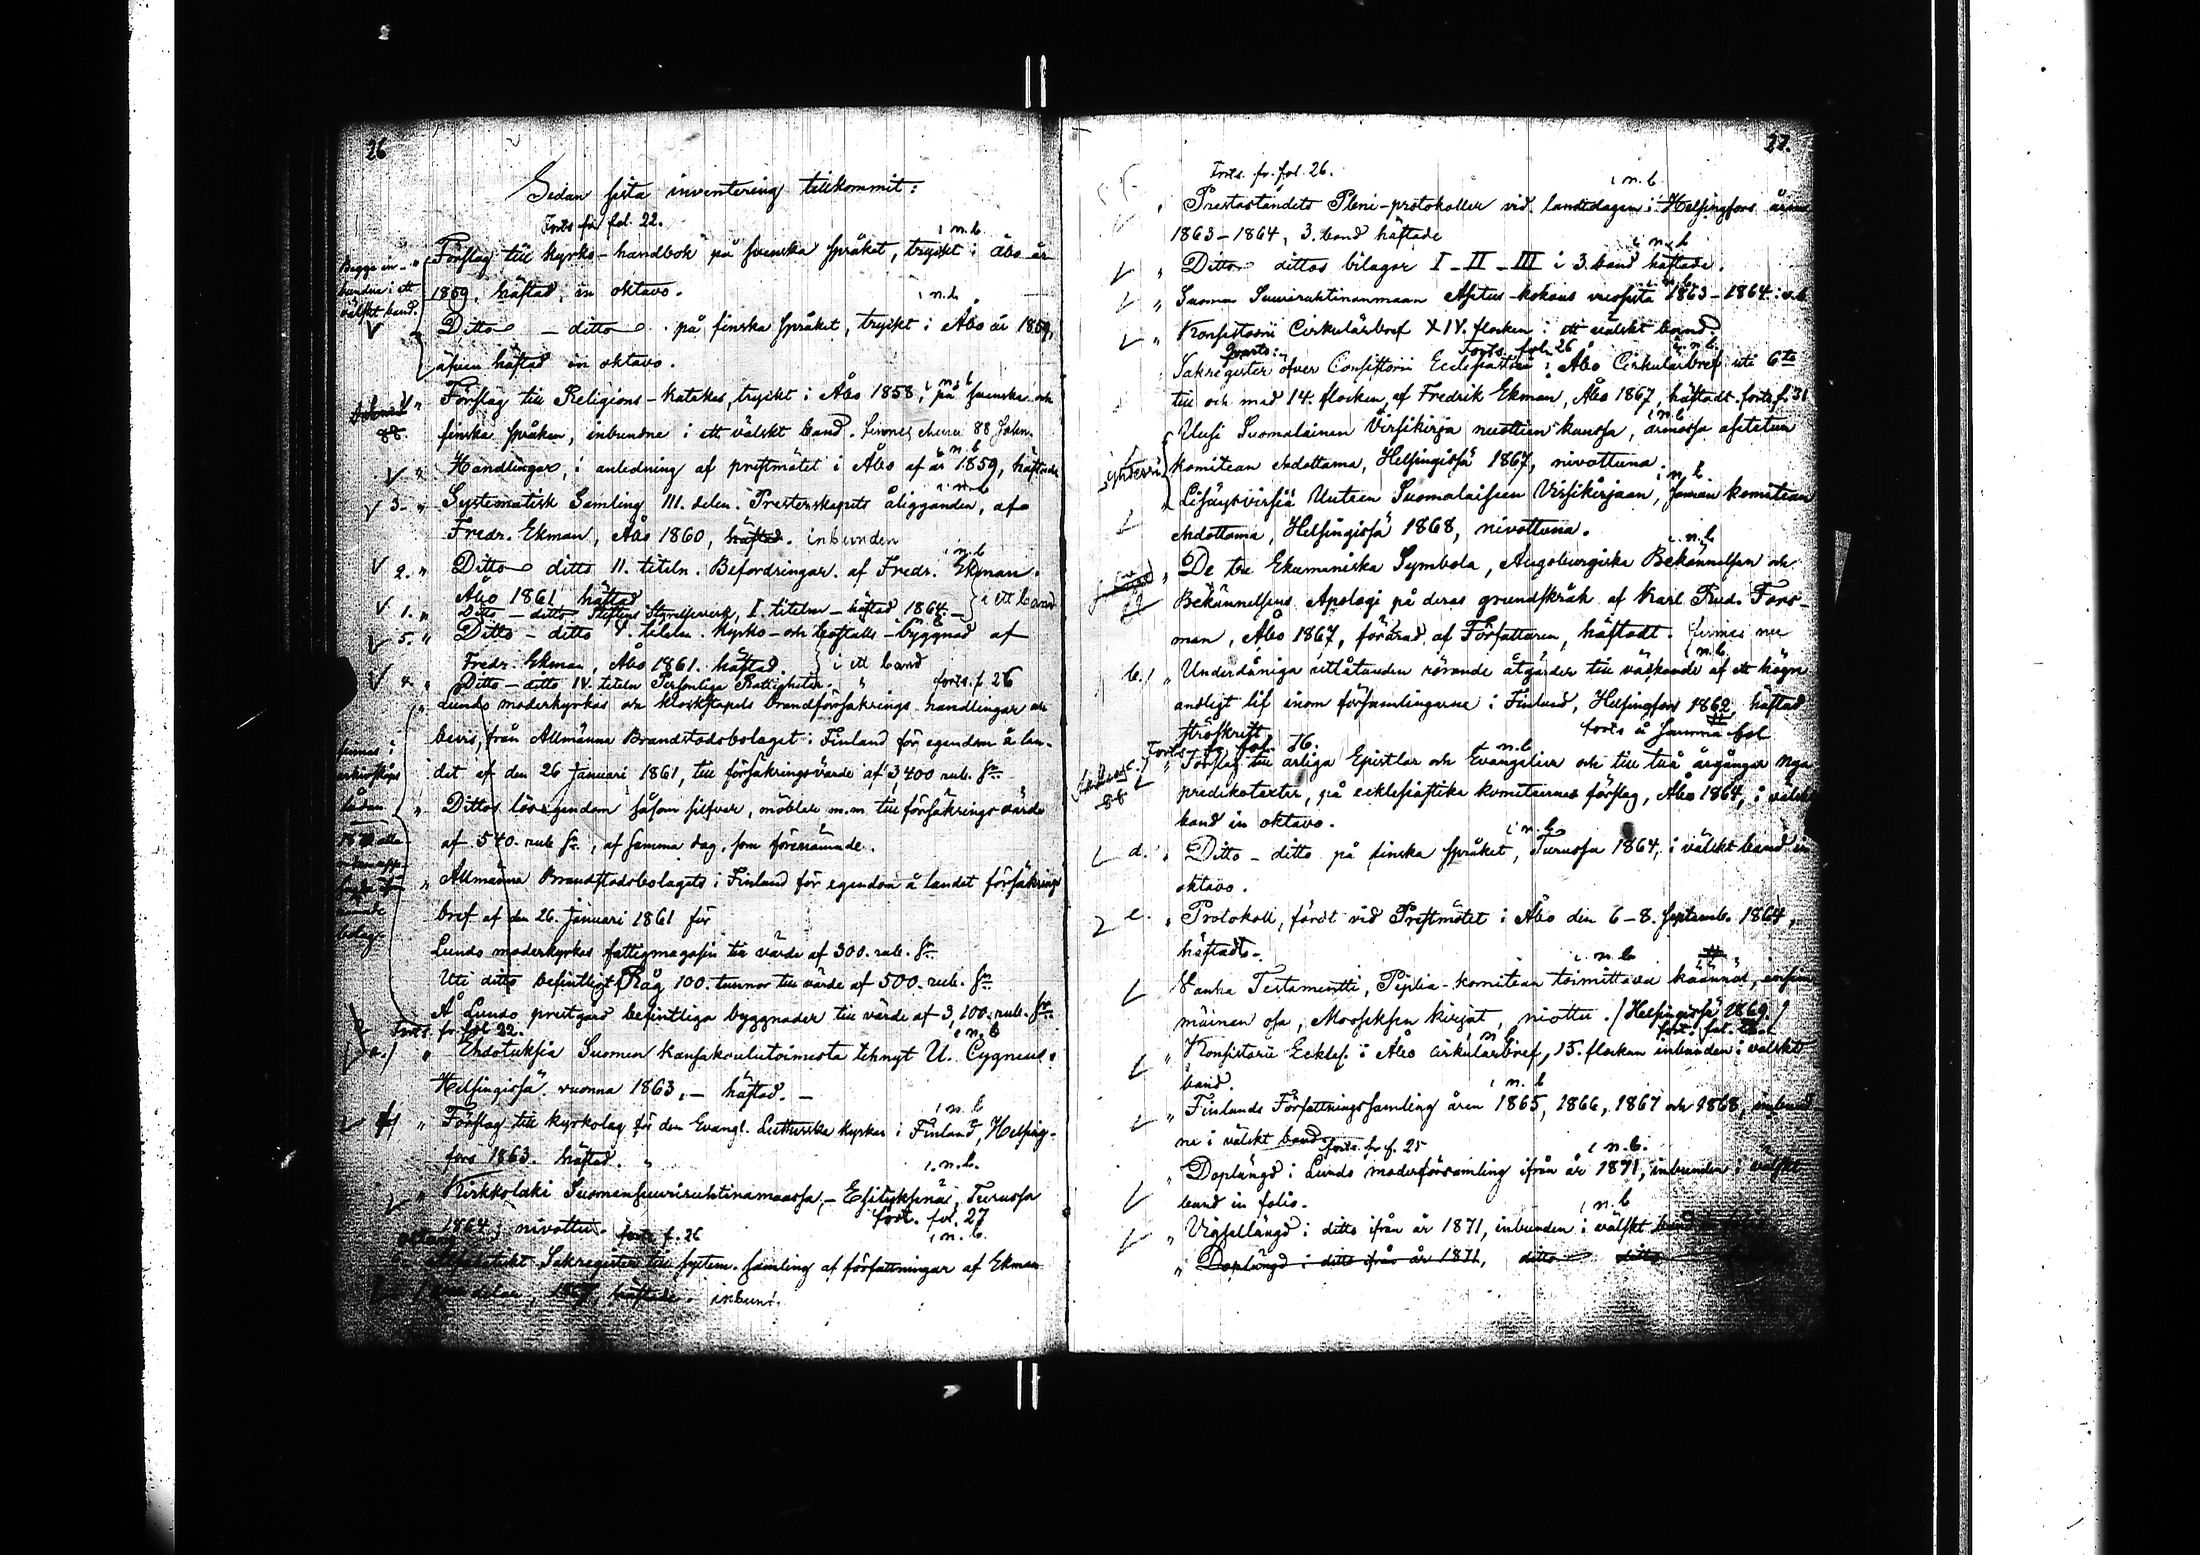 26
Sedan sista inventering tillkommit:
Forts. fr. fol. 22.
i n. b.
Förslag till kyrko-handbok på svenska språket, tryckt i Åbo år
1859, häftad, in oktavo.
i n. b.
Ditto – ditto på finska språket, tryckt i Åbo år 1859,
äfven häftad in oktavo.
Begge in-
bundna i ett
välskt band.
i n. b
Förslag till Religions-katekes, tryckt i Åbo 1858, på svenska och
finska språken, inbundne i ett välskt band. 88
88.
i n. b
Handlingar, i anledning af prestmötet i Åbo af år 1859, häftade
i n. b
3. Systematisk Samling III. delen. Presterskapets åligganden, af
Fredr. Ekman, Åbo 1860, häftad. inbunden
i n. b
2. Ditto ditto II. titeln. Befordringar. af Fredr. Ekman.
Åbo 1861 häftad
1. Ditto – ditto Stiftens Styrelseverk, I. titeln – häftad. 1864. – i ett band
5. Ditto – ditto V. titeln. Kyrko- och Boställs-byggnad af
Fredr. Ekman, Åbo 1861. häftad. i ett band
4. Ditto – ditto IV. titeln Personliga Rättigheter. " forts. f. 26
Lundo moderkyrkas och klockstapels brandförsäkrings-handlingar och
bevis, från Allmänna Brandstodsbolaget i Finland för egendom å lan-
det af den 26 Januari 1861, till försäkringsvärde af 3400 rub. Sr.
Dittos lösegendom såsom silfver, möbler m.m till försäkringsvärde
af 540. rub Sr., af samma dag, som förenämnde.
Allmänna Brandstodsbolagets i Finland för egendom å landet försäkrings
bref af den 26. Januari 1861 för
Lundo moderkyrkas fattigmagasin till värde af 300. rub. Sr.
Uti ditto befintligt Råg 100. tunnor till värde af 500. rub. Sr.
Å Lundo prestgård befintliga byggnader till värde af 3,100. rub. Sr.
Forts. fr. fol 22.
i n. b
a.) Ehdotuksia Suomen kansakoulutoimesta tehnyt U. Cygneus.
Helsingissä vuonna 1863, – häftad. –
i n. b
Förslag till kyrkolag för den Evangl. Lutherska kyrkan i Finland, Helsing-
fors 1863. häftad.
i. n. b.
Kirkkolaki Suomensuuriruhtinamaassa, – Esityksinä, Turussa
1864; nivottu. forts f. 26 fort. fol. 27
i n. b.
Sakregister till system. samling af författningar af Ekman
häftade. inbund.
27.
Forts. fr. fol. 26.
i n. b.
Prestaståndets Pleni-protokoller vid landtdagen i Helsingfors åren
1863–1864, 3. band häftade
i n. b
Ditto dittos bilagor I – II – III i 3. band häftade.
Suomen Suuriruhtinanmaan Asetus-kokous vuosilta 1863–1864 i v. b
Konsistorii Cirkulärbref XIV. flocken i ett välskt band.
Forts. fol. 26 i. n. b.
Sakregister öfver Consistorii Ecclesiastici i Åbo Cirkulärbref uti 6te
till och med 14. flocken, af Fredrik Ekman, Åbo 1867, häftadt. forts f. 31
i n. b
Uusi Suomalainen Virsikirja nuottien kanssa, armossa asetetun
komitean ehdottama, Helsingissä 1867, nivottuna.
i n. b.
Lisäysvirsiä Uuteen Suomalaiseen Virsikirjaan, saman komitean
ehdottama, Helsingissä 1868, nivottuna.
i. n. b
De tre Ekumeniska Symbola, Augsburgiska Bekännelsen och
Bekännelsens Apologi på deras grundspråk af Karl Rud. Fors-
man, Åbo 1867, förärad af Författaren, häftadt. finnes nu
i n. b.
b.) Underdåniga utlåtanden rörande åtgärder till väckande af ett högre
andligt lif inom församlingarna i Finland, Helsingfors 1862, häftad
ströskrift. forts å samma fol
Forts. fr. fol. 26. i n. b
c.) Förslag till årliga Epistlar och Evangelier och till två årgångar nya
predikotexter, på ecklesiastika komiteernas förslag, Åbo 1864, i välskt
band in oktavo.
88
i n. b
d. Ditto – ditto på finska språket, Turussa 1864, i välskt band in
oktavo.
e. Protokoll, fördt vid Prestmötet i Åbo den 6–8. Septemb. 1864,
häftadt.
i. n. b
Vanha Testamentti, Piplia-komitean toimittava käännös, ensim-
mäinen osa, Mooseksen kirjat, niottu. (Helsingissä 1869.)
fort. fol. 26.
i n b
Konsistorii Eckles. i Åbo cirkulärbref, 15. flocken inbunden i välskt
band.
i n. b
Finlands Författningssamling åren 1865, 1866, 1867 och 1868, inbund-
ne i välskt band. forts. fr f. 25
i n. b.
Doplängd i Lundo moderförsamling ifrån år 1871, inbunden i välskt
band in folio.
i n. b
Vigsellängd i ditto ifrån år 1871, inbunden i välskt band
Doplängd i ditto ifrån år 1871, ditto ditto